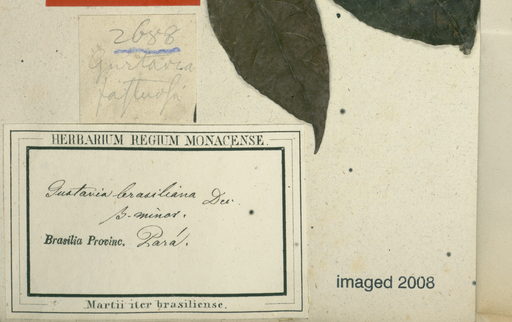 2688
Gustavia
fastuosa
HERBARIUM REGIUM MONACENSE.
Gustavia brasiliana Dec.
β. minor.
Brasilia Provinc. Pará.
Martii iter brasiliense.
imaged 2008